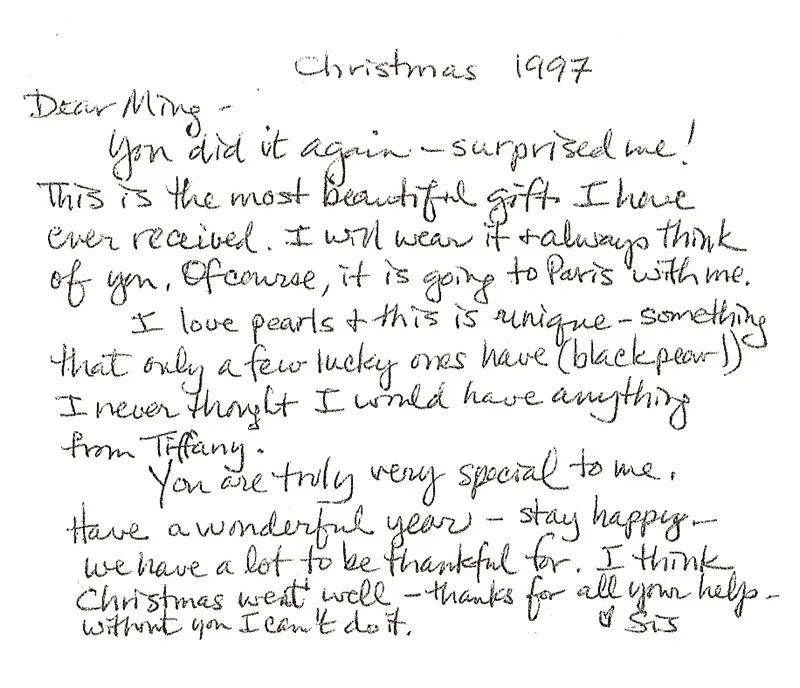 Christmas 1997
Dear Ming -
You did it again - surprised me!
This is the most beautiful gift I have
ever received. I will wear it + always think
of you. Of course, it is going to Paris with me.
I love pearls + this is unique - something
that only a few lucky ones have (black pearl)
I never thought I would have anything
from Tiffany.
You are truly very special to me.
Have a wonderful year - stay happy -
we have a lot to be thankful for. I think
Christmas went well - thanks for all your help -
without you I can't do it.
♡ Sis